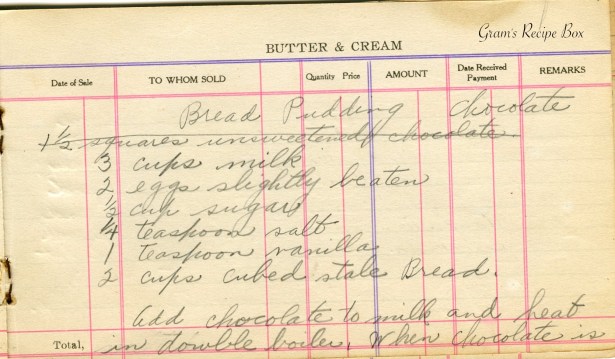 Gram's Recipe Box
BUTTER & CREAM
Date of Sale TO WHOM SOLD Quantity Price AMOUNT Date Received Payment REMARKS
Bread Pudding Chocolate
1½ squares unsweetened chocolate.
3 cups milk
2 eggs slightly beaten
½ cup sugar
¼ teaspoon salt
1 teaspoon vanilla
2 cups cubed stale Bread.
Add chocolate to milk and heat
Total, in double boiler, When chocolate is